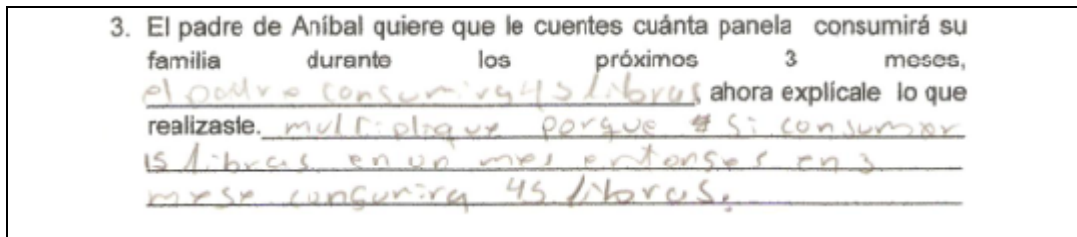 3. El padre de Aníbal quiere que le cuentes cuánta panela consumirá su
familia durante los próximos 3 meses,
el padre consumira 45 libras ahora explícale lo que
realizaste. multiplique porque si consumxor
15 libras en un mes entonses en 3
mese consurira 45 libras.